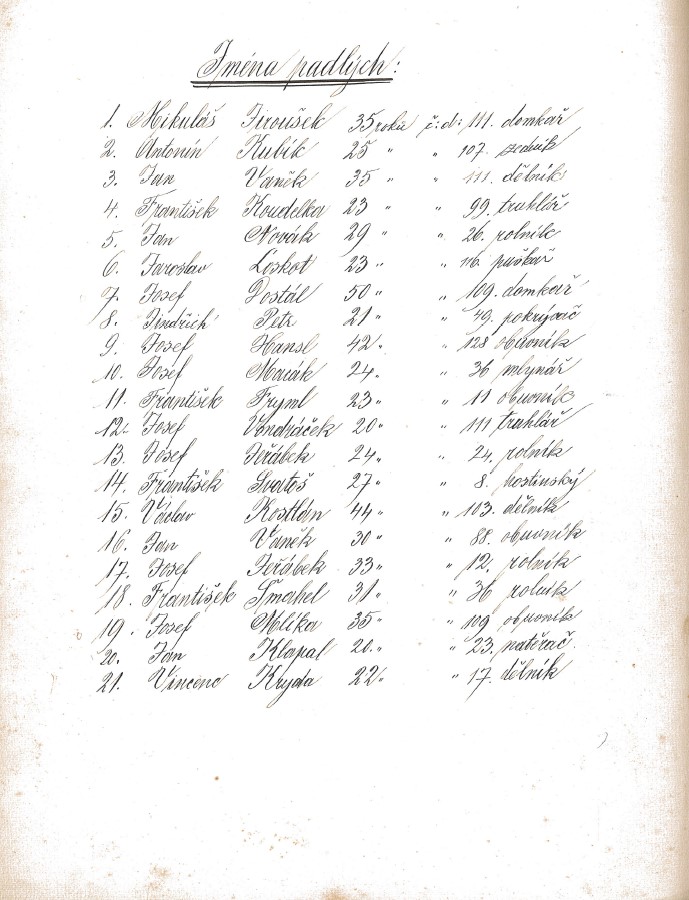 Jména padlých:
1. Mikuláš Jiroušek 35 roků č: d: 111. domkář
2. Antonín Kubík 25 " " 107. zedník
3. Jan Vaněk 35 " " 111. dělník
4. František Koudelka 23 " " 99. truhlář
5. Jan Novák 29 " " 26. rolník
6. Jaroslav Loskot 23 " " 116. puškař
7. Josef Dostál 50 " " 109. domkář
8. Jindřich Petr 21 " " 49. pokrývač
9. Josef Hansl 42 " " 128 obuvník
10. Josef Macák 24 " " 36 mlynář
11. František Fryml 23 " " 11 obuvník
12. Josef Vondráček 20 " " 111 truhlář
13. Josef Jeřábek 24 " " 24. rolník
14. František Svatoš 27 " " 8. hostinský
15. Václav Kostlán 44 " " 103. dělník
16. Jan Vaněk 30 " " 88. obuvník
17. Josef Jeřábek 33 " " 12. rolník
18. František Šmahel 31 " " 36 rolník
19. Josef Mlíka 35 " " 109 obuvník
20. Jan Klapal 20 " " 23. natěrač.
21. Vincenc Kryda 22 " " 17. dělník